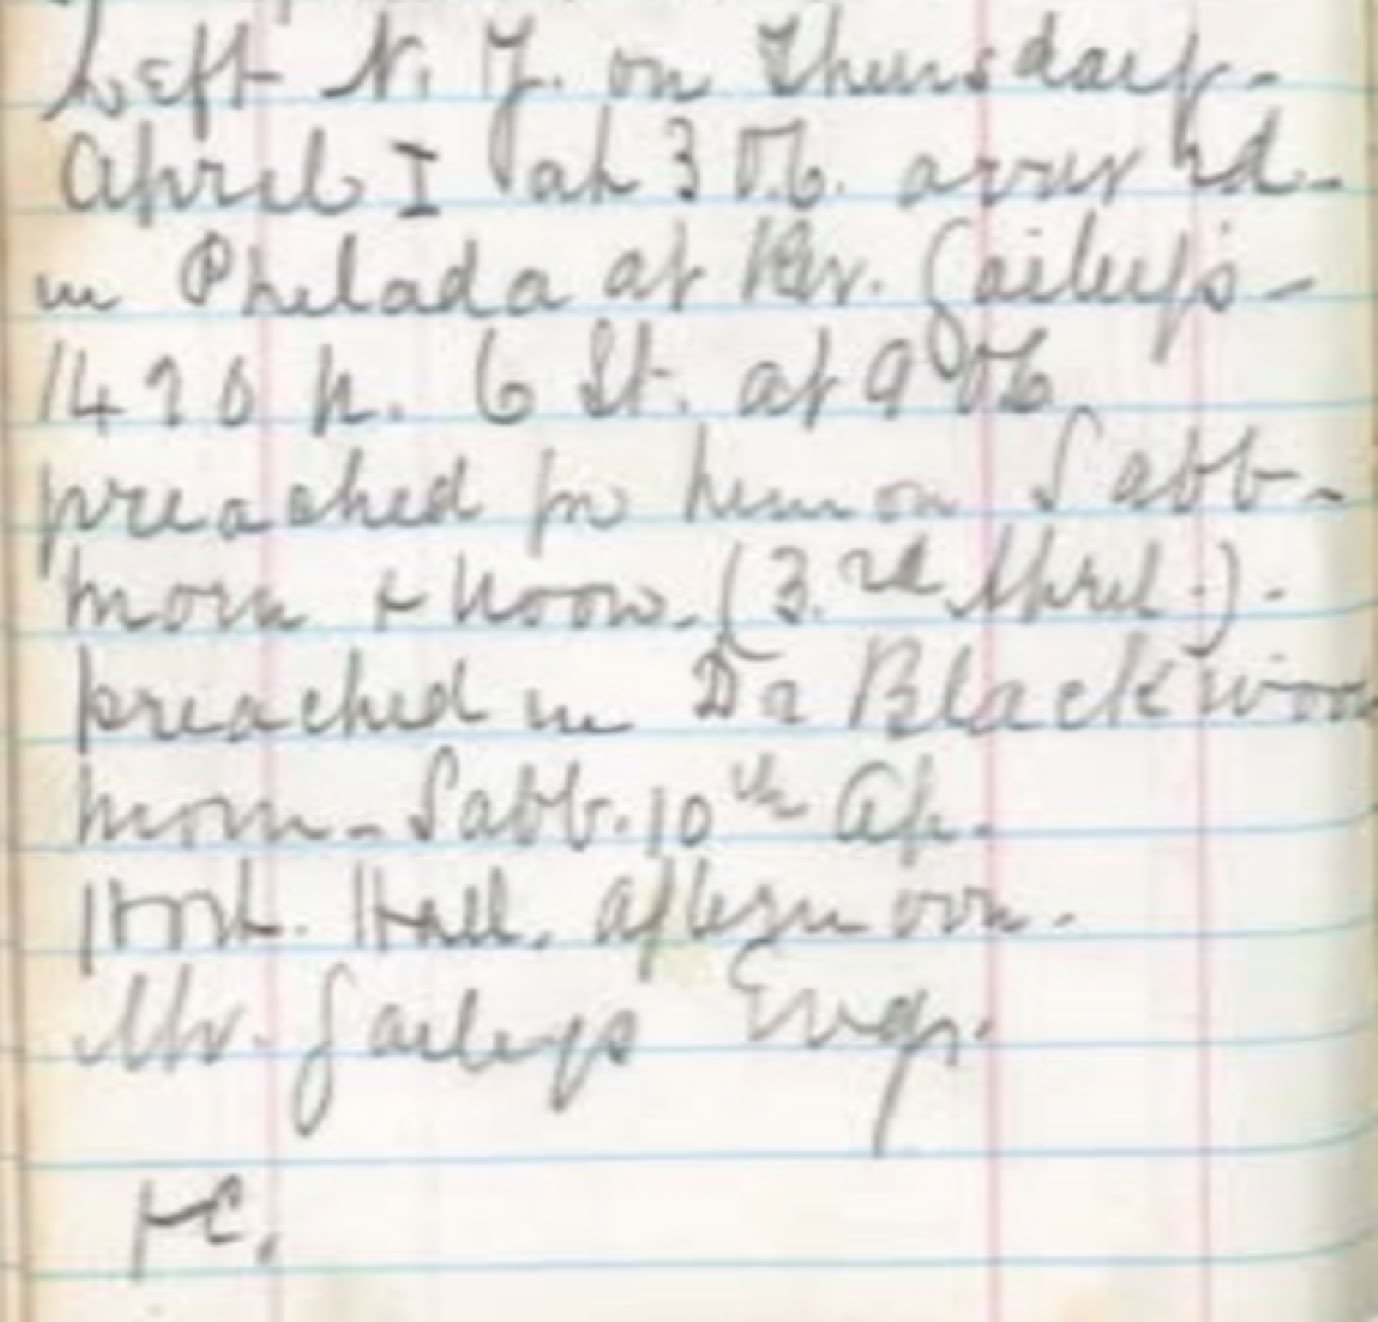 Left N. Y. on Thursday-
April I at 3 arrived-
in Philada at Rev. Gailey's-
1490 N. 6 St. at 9
preached for him on Sabb-
morn & Noon. (3.rd April.)-
preached in Dr Blackwood
morn- Sabb. 10th Ap.
Hort. Hall, afternoon.
Mr. Gaileys Evg.
&c.